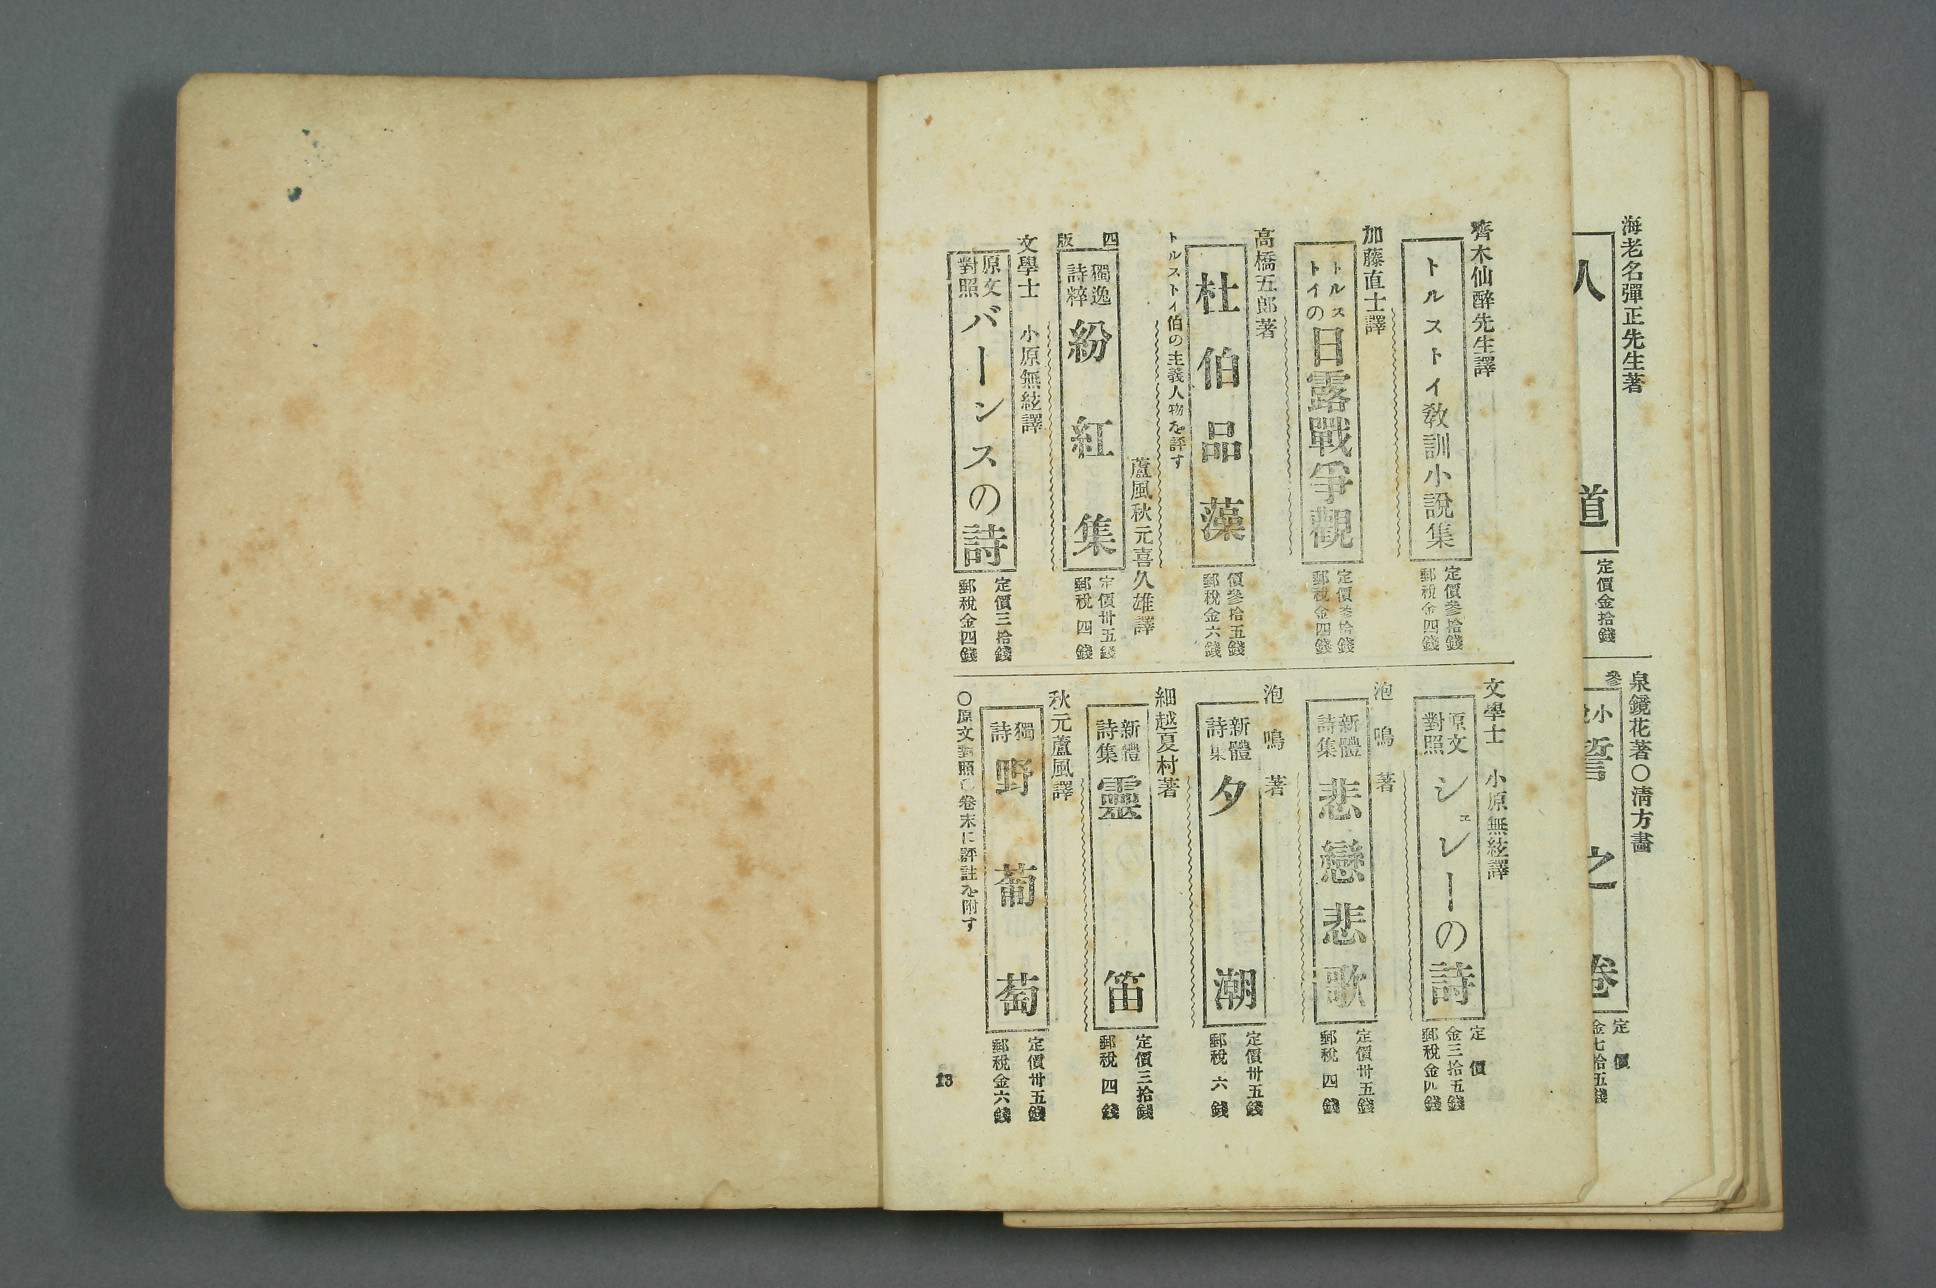 海老名彈正先生著
人道
定價金拾錢
泉鏡花著〇淸方畫
小
誓之卷
定價
金七拾五錢
齊木仙醉先生譯
トルストイ敎訓小說集
定價參拾錢
郵稅金四錢
加藤直士譯
トルストイの日露戰爭觀
定價參拾錢
郵稅金四錢
高橋五郎著
杜伯品藻
價參拾五錢
郵稅金六錢
トルストイ伯の主義人物を評す
蘆風秋元喜久雄譯
四版
獨逸詩粹
紛紅集
定價卅五錢
郵稅四錢
文學士 小原無絃譯
原文對照
バーンスの詩
定價三拾錢
郵稅金四錢
文學士 小原無絃譯
原文對照
シエレーの詩
定價
金三拾五錢
郵稅金四錢
泡鳴著
新體詩集
悲戀悲歌
定價卅五錢
郵稅四錢
泡鳴著
新體詩集
夕潮
定價卅五錢
郵稅六錢
細越夏村著
新體詩集
靈笛
定價三拾錢
郵稅四錢
秋元蘆風譯
獨詩
野葡萄
定價卅五錢
郵稅金六錢
〇原文對照〇卷末に評註を附す
13